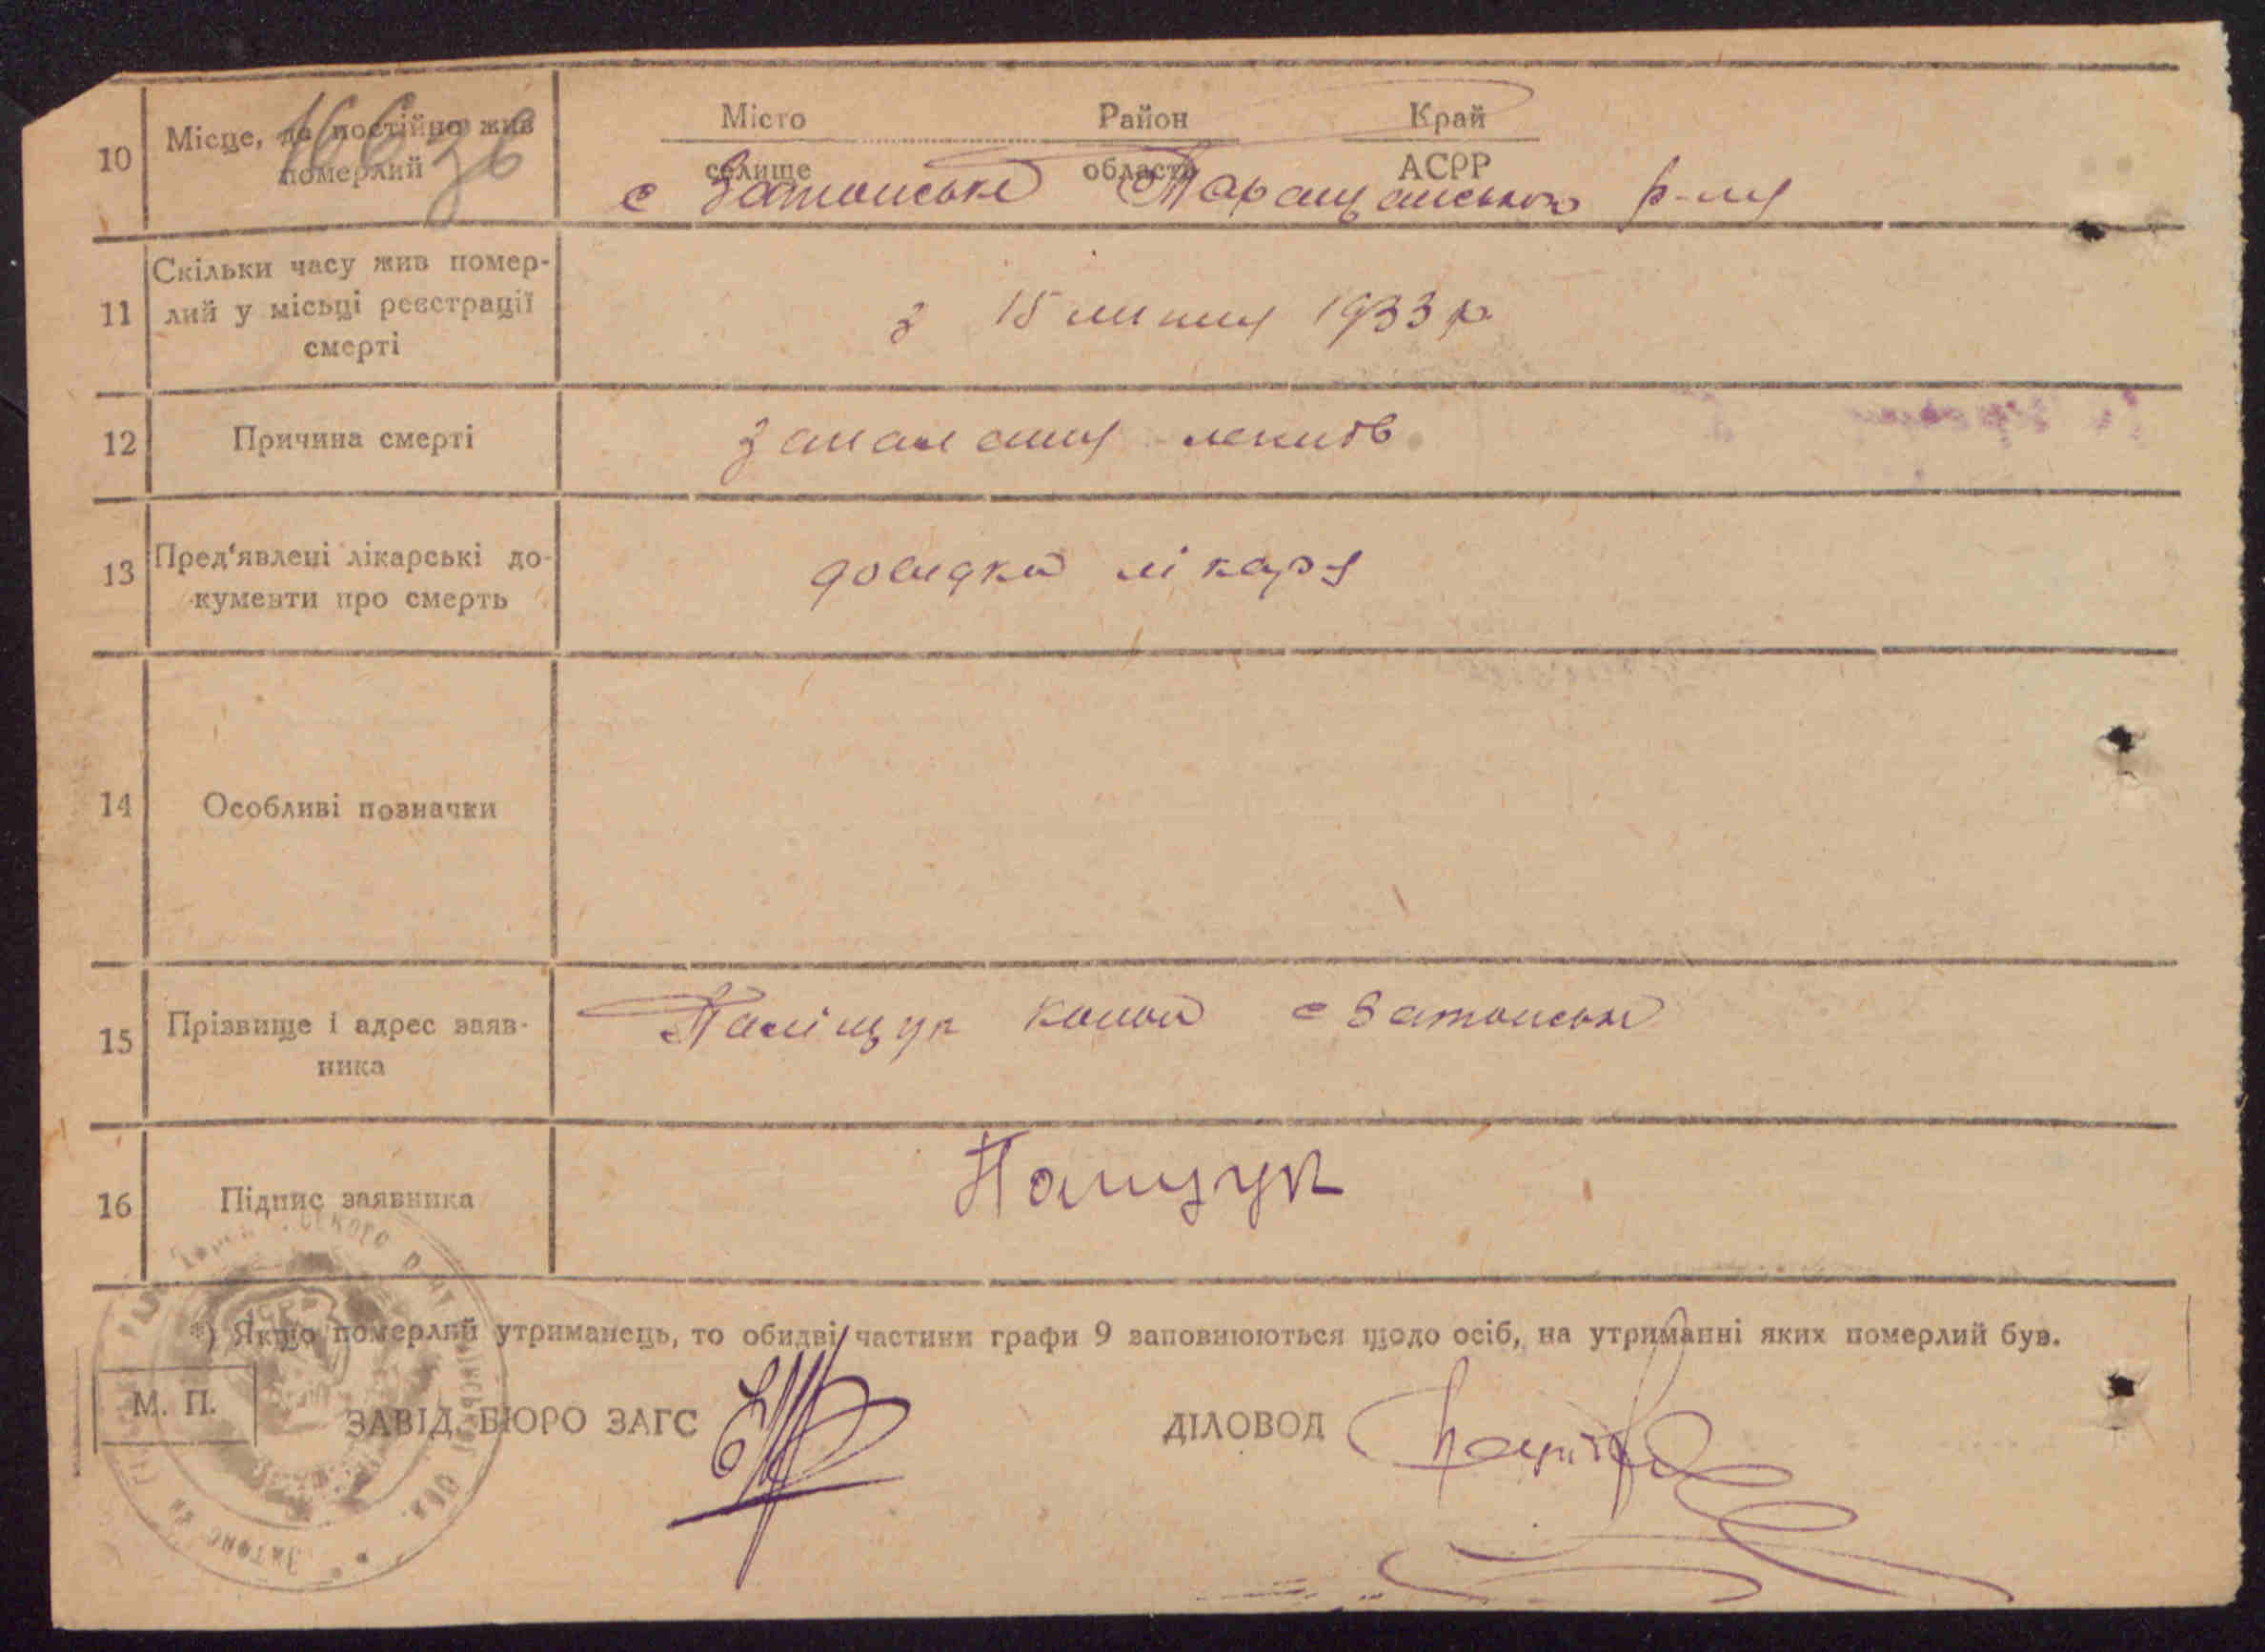 10 Місце, де постійно жив
померлий
166 36
Місто Район Край
селище область АСРР
с Затонське Таращанського р-ну
11 Скільки часу жив помер-
лий у місьці реєстрації
смерті
з 15 липня 1933 р
12 Причина смерті
запалення легенів
13 Пред'явлені лікарські до-
кументи про смерть
довидка лікаря
14 Особливі позначки
15 Прізвище і адрес заяв-
ника
Паліщук Конон с Затонське
16 Підпис заявника
Палищук
*) Якщо померлий утриманець, то обидві частини графи 9 заповнюються щодо осіб, на утриманні яких померлий був.
М. П. ЗАВІД. БЮРО ЗАГС ДІЛОВОД